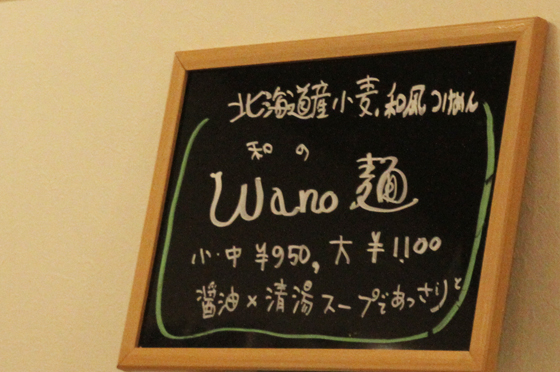 北海道産小麦、和風つけめん
和の
Wano 麺
小・中 ¥950, 大 ¥1,100
醤油×清湯スープであっさりと